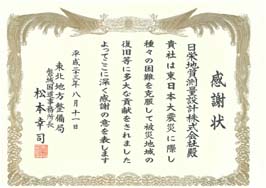 感謝状
日栄地質測量設計株式会社殿
貴社は東日本大震災に際し
種々の困難を克服して被災地域の
復旧等に多大な貢献をされました
よってここに深く感謝の意を表します
平成二十三年八月十一日
東北地方整備局
磐城国道事務所長
松本幸司